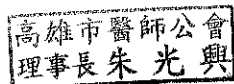 高雄市醫師公會
理事長朱光興